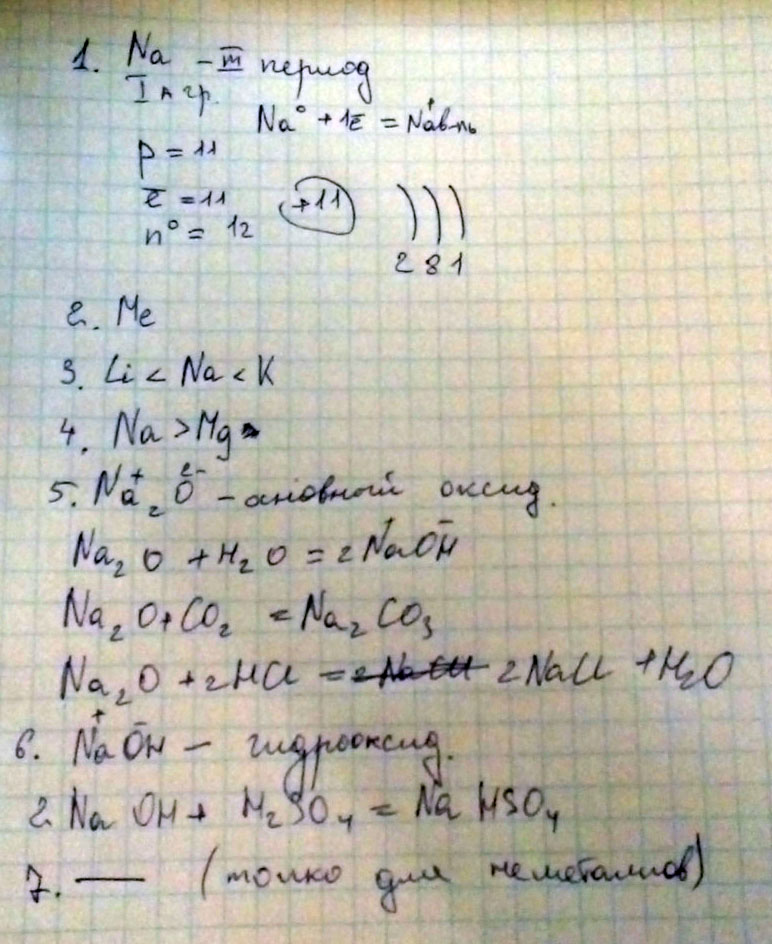 1. Na – III период
I A гр.
Na⁰ + 1ē = Na⁺ в-ль
p = 11
ē = 11
n⁰ = 12
+11 ) ) )
2 8 1
2. Me
3. Li < Na < K
4. Na > Mg
5. Na⁺₂O²⁻ – основный оксид.
Na₂O + H₂O = 2Na⁺OH⁻
Na₂O + CO₂ = Na₂CO₃
Na₂O + 2HCl = 2NaCl + H₂O
6. Na⁺OH⁻ – гидрооксид.
2 NaOH + H₂SO₄ = NaHSO₄
7. —— (толко для неметаллов)